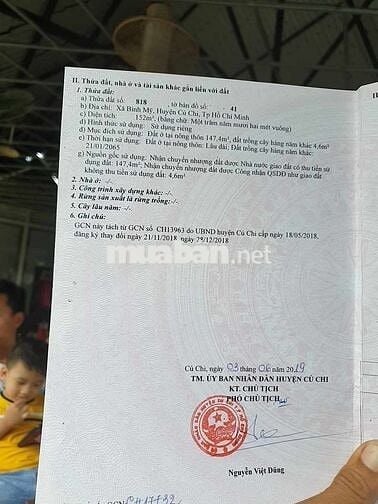 II. Thửa đất, nhà ở và tài sản khác gắn liền với đất
1. Thửa đất:
a) Thửa đất số: 818 , tờ bản đồ số: 41
b) Địa chỉ: Xã Bình Mỹ, Huyện Củ Chi, Tp Hồ Chí Minh
c) Diện tích: 152m², (bằng chữ: Một trăm năm mươi hai mét vuông)
d) Hình thức sử dụng: Sử dụng riêng
đ) Mục đích sử dụng: Đất ở tại nông thôn 147,4m², đất trồng cây hàng năm khác 4,6m²
e) Thời hạn sử dụng: Đất ở tại nông thôn: Lâu dài; Đất trồng cây hàng năm khác:
21/01/2065
g) Nguồn gốc sử dụng: Nhận chuyển nhượng đất được Nhà nước giao đất có thu tiền sử
dụng: 147,4m²; Nhận chuyển nhượng đất được Công nhận QSDĐ như giao đất
không thu tiền sử dụng đất: 4,6m²
2. Nhà ở: -/-
3. Công trình xây dựng khác: -/-
4. Rừng sản xuất là rừng trồng: -/-
5. Cây lâu năm: -/-
6. Ghi chú:
GCN này tách từ GCN số CH13963 do UBND huyện Củ Chi cấp ngày 18/05/2018,
đăng ký thay đổi ngày 21/11/2018 ngày 25/12/2018
muaban.net
Củ Chi, ngày 03 tháng 06 năm 2019
TM. ỦY BAN NHÂN DÂN HUYỆN CỦ CHI
KT. CHỦ TỊCH
PHÓ CHỦ TỊCH
Nguyễn Việt Dũng